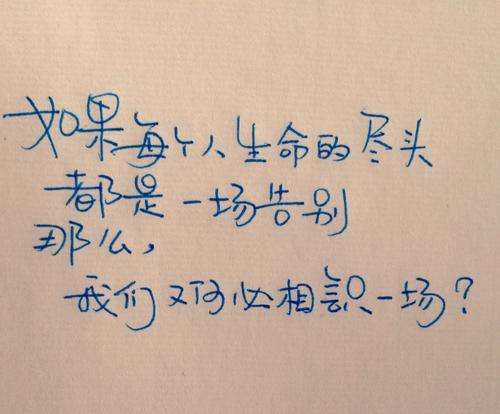 如果每个人生命的尽头
都是一场告别
那么,
我们又何必相識一场?